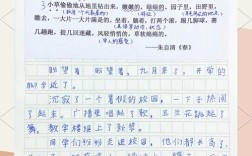 3小草偷偷地从地里钻出来，嫩嫩的，绿绿的。园子里，田野里，
瞧去，一大片一大片满是的。坐着，躺着，打两个滚，踢几脚球，赛
几趟跑，捉几回迷藏。风轻悄悄的，草软绵绵的。
——朱自清《春》
盼望着，盼望着，九月来了，开学的
脚步近了。
沉寂了一个暑假的校园，一下子热闹
了起来。广播里唱起了歌，玉兰花跳起了
舞，教学楼描上了新装。
同学们纷纷走进校园，他们都